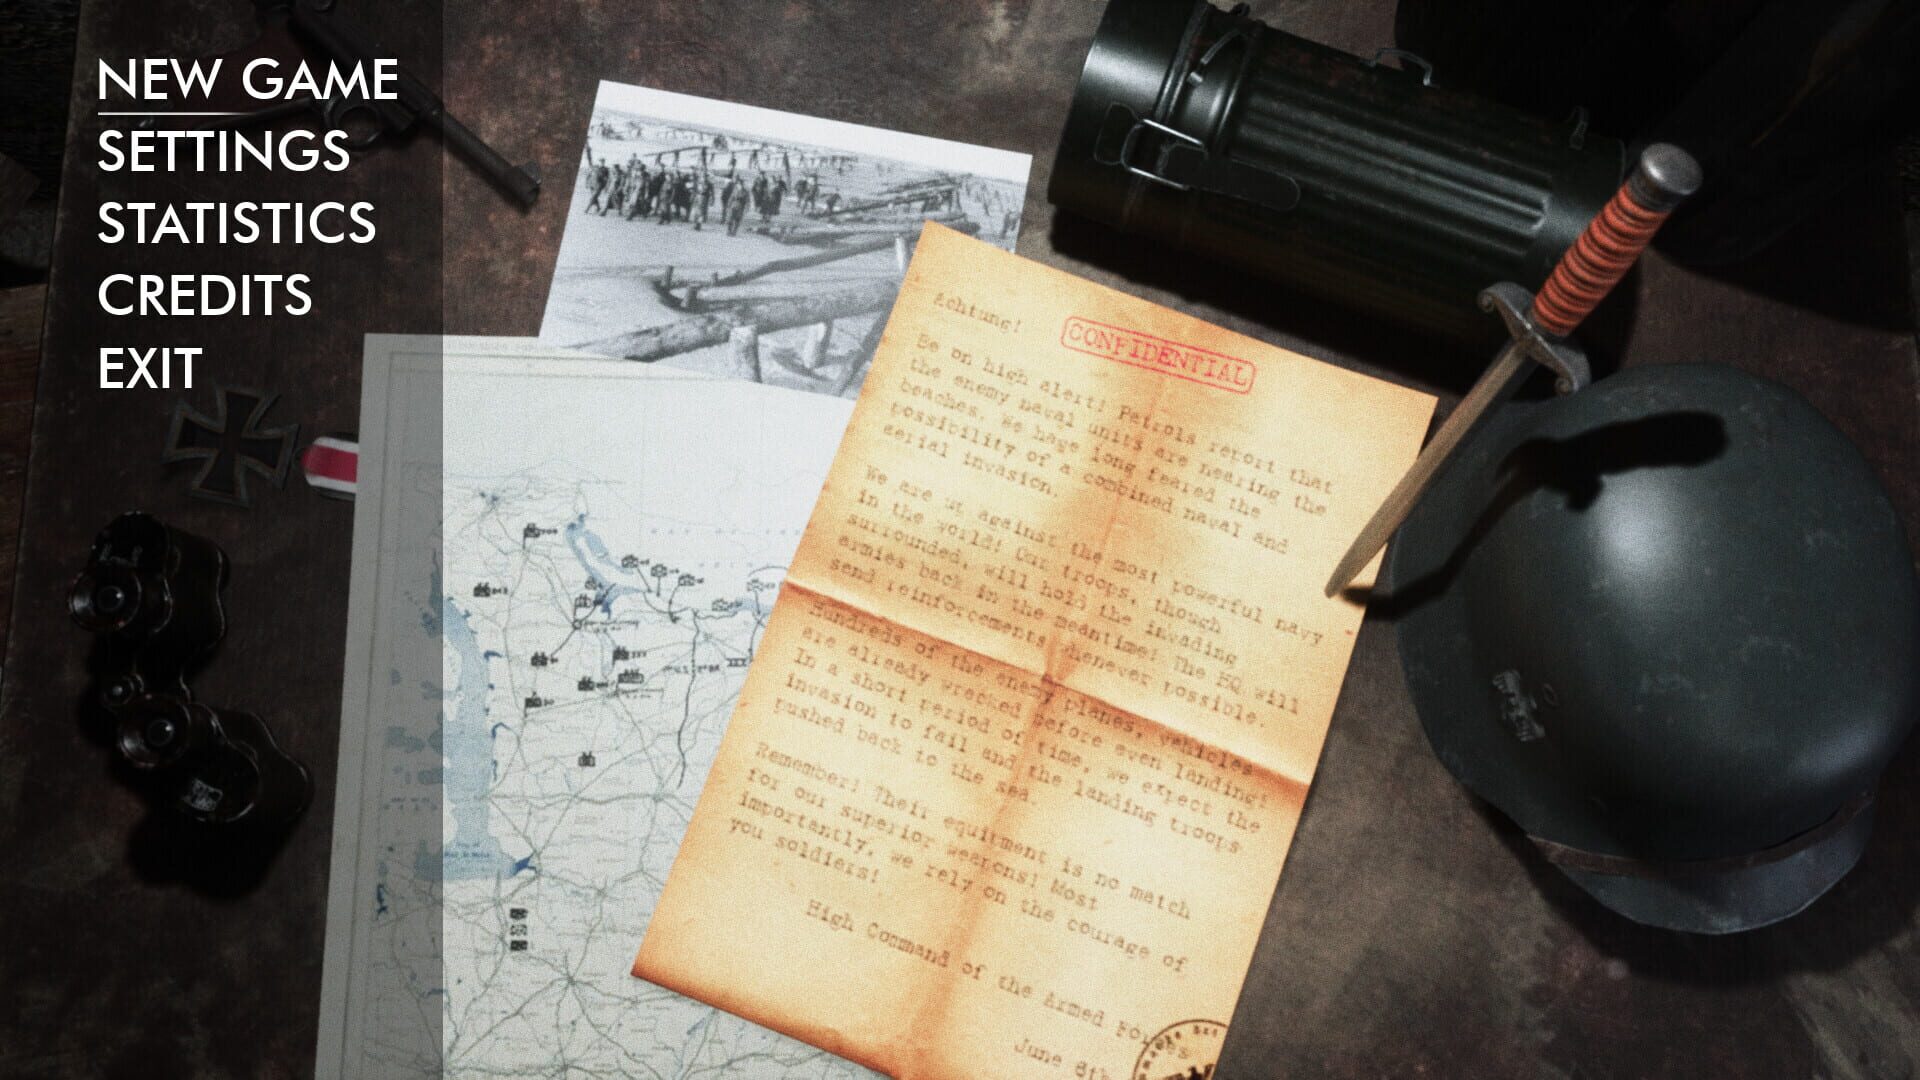 NEW GAME
SETTINGS
STATISTICS
CREDITS
EXIT
Achtung!
CONFIDENTIAL
Be on high alert! Patrols report that
the enemy naval units are nearing the
beaches. We have long feared the
possibility of a combined naval and
aerial invasion.
We are up against the most powerful navy
in the world! Our troops, though
surrounded, will hold the invading
armies back in the meantime! The HQ will
send reinforcements whenever possible.
Hundreds of the enemy planes, vehicles
are already wrecked before even landing!
In a short period of time, we expect the
invasion to fail and the landing troops
pushed back to the sea.
Remember! Their equipment is no match
for our superior weapons! Most
importantly, we rely on the courage of
you soldiers!
High Command of the Armed Forces
June 6th